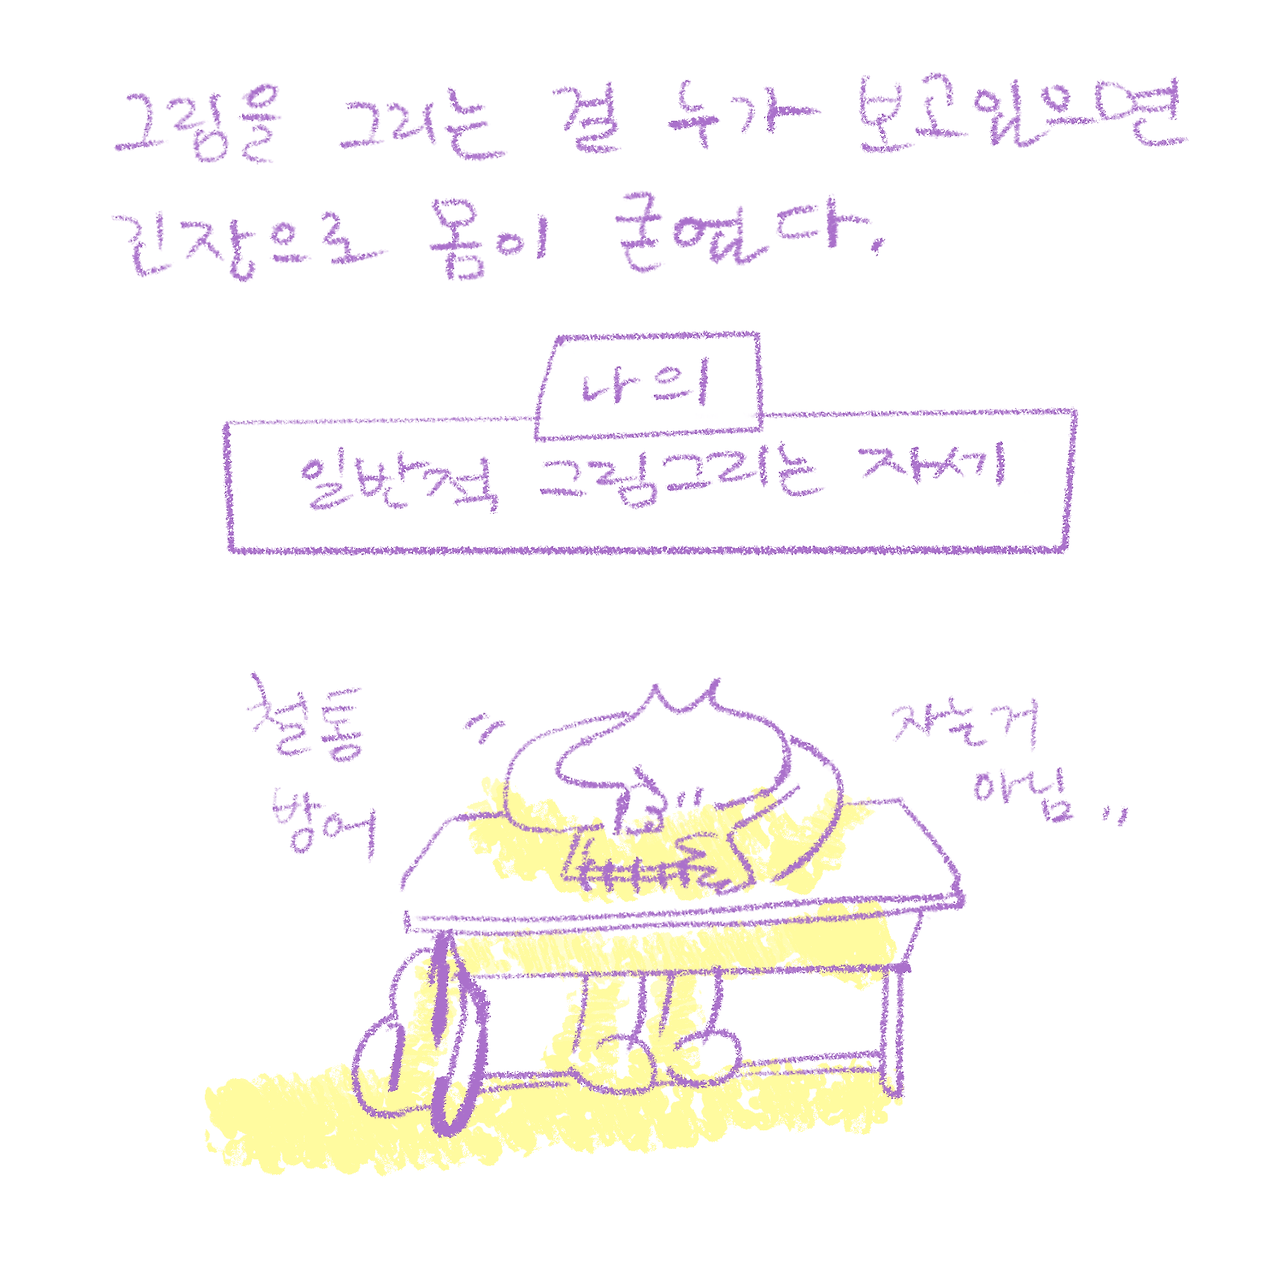 그림을 그리는 걸 누가 보고있으면
긴장으로 몸이 굳었다.
나의
일반적 그림그리는 자세
철통
방어
자는거
아님